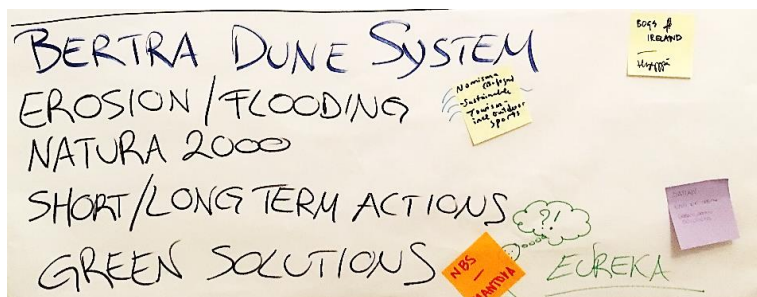 BERTRA DUNE SYSTEM
EROSION/FLOODING
NATURA 2000
SHORT/LONG TERM ACTIONS
GREEN SOLUTIONS
Nomisma
Sustainable
Tourism
incl outdoor
sports
BOGS of
IRELAND
?!
NBS
–
MANTOVA
EUREKA